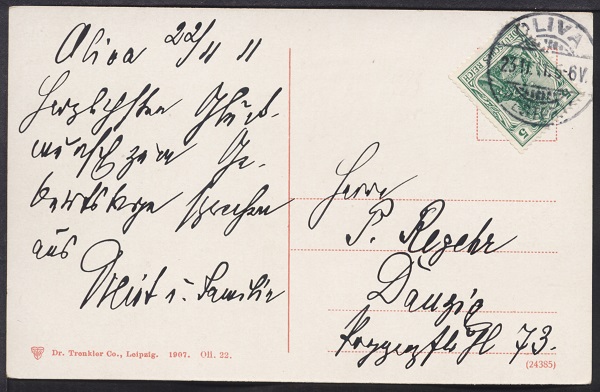 Oliva 22/11 11
Herzlichsten Glück-
wunsch zum Ge-
burtstage sprechen
aus
u. Familie
OLIVA
23.11.11. 5-6V.
DEUTSCHES REICH
5
Herrn
P. Regehr
Danzig
73.
Dr. Trenkler Co., Leipzig. 1907. Oli. 22.
(24385)